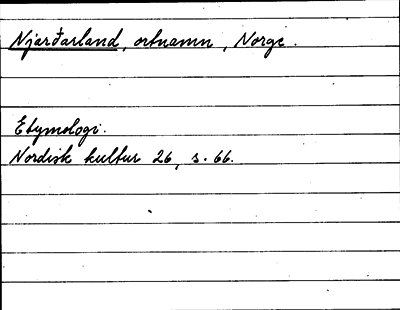 Njarðarland, ortnamn, Norge.
Etymologi.
Nordisk kultur 26, s. 66.